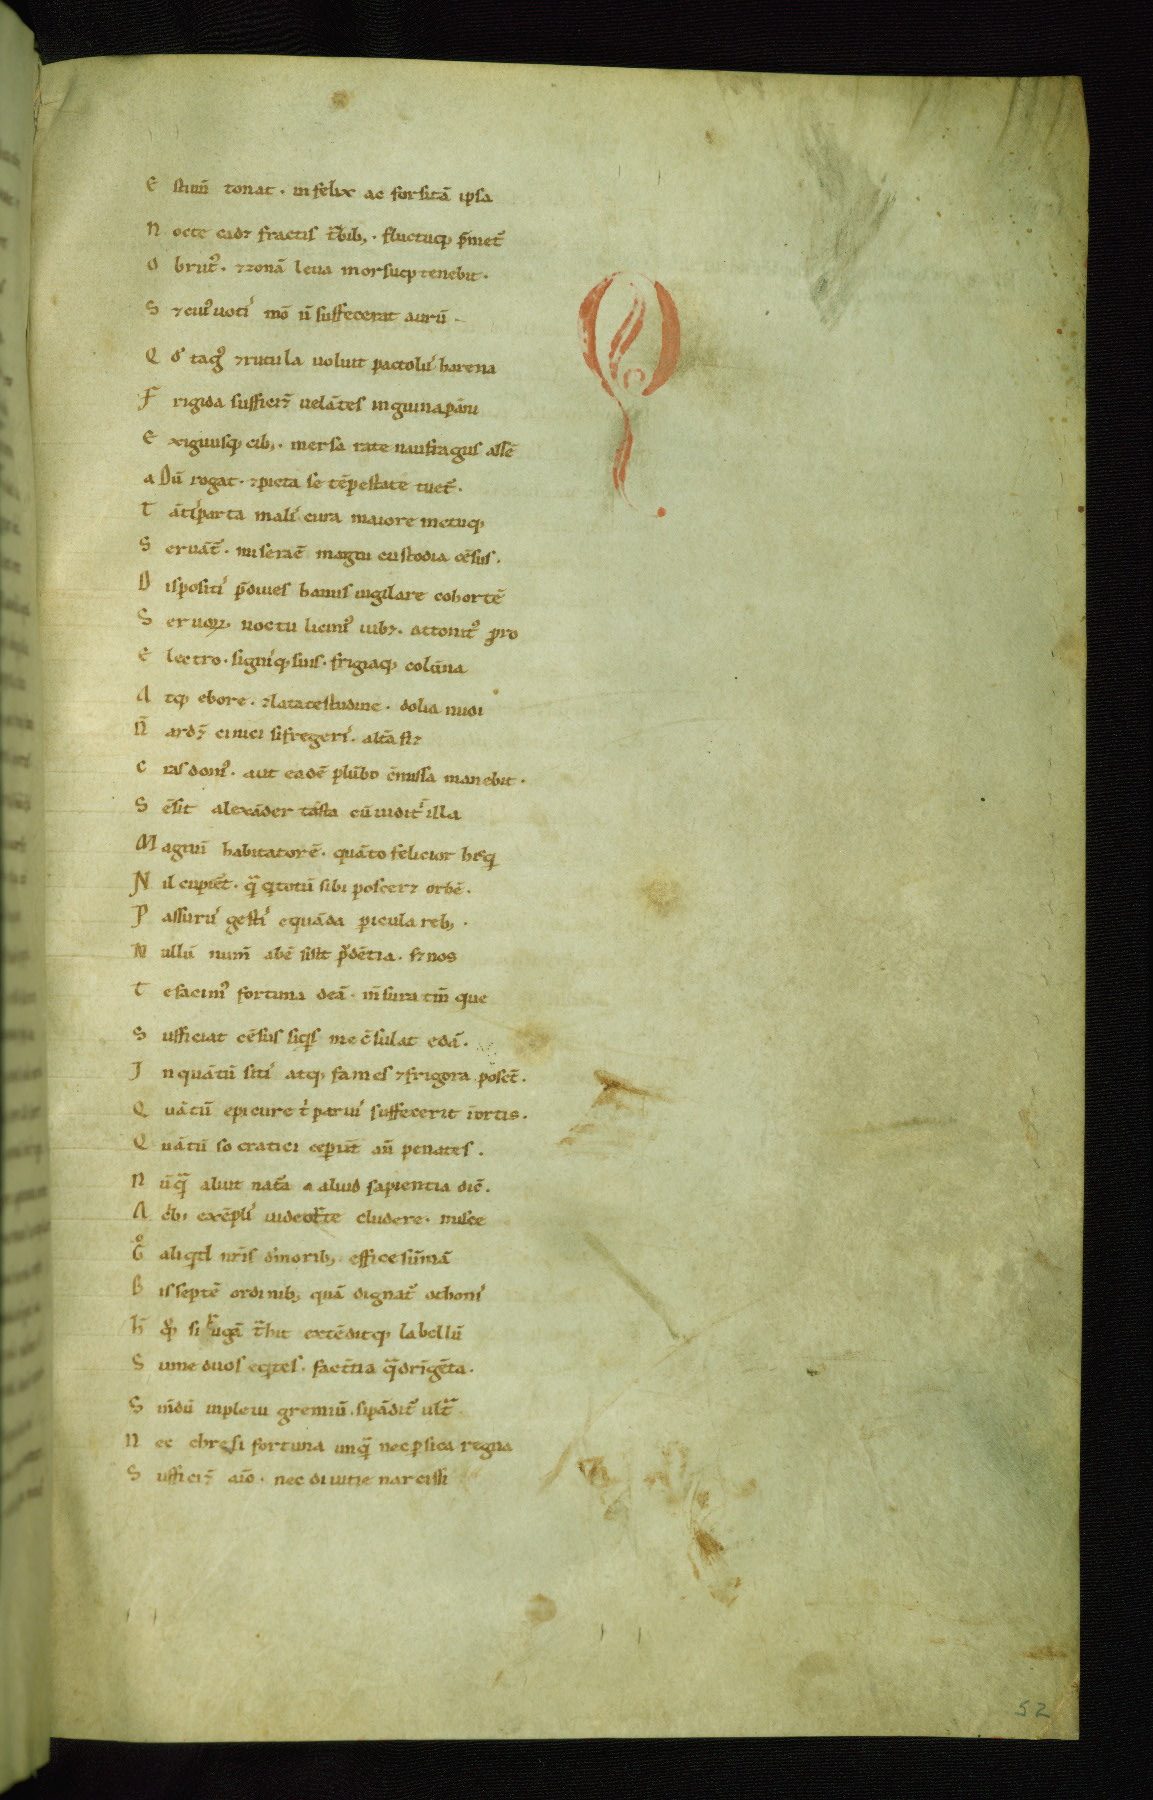 E stiuũ tonat . infelix ac forsitã ipsa
N octe cadꝫ fractis t͛bib; . fluctuq; p̃met᷑
O brut᷑ . ⁊zonã leua morsuq; tenebit .
S ꝫ cui᷒ uoti᷒ mõ ñ suffecerat aurũ .
Q d̛ tag᷒ ⁊rutula voluit pactolu᷒ harena
F rigida sufficiẽt uelãtes inguina pãni
E xiguusq; cib; . mersa rate naufragus assẽ
a Dũ rogat . ⁊picta se tẽpestate tuet᷑ .
T ãti᷒ parta mali᷒ cura maiore metuq;
S eruãt᷑ . miseraẽ magni custodia cẽsus .
D ispositi᷒ p̃diues hamis uigilare cohortẽ
S eruoꝝ noctu licin᷒ iubꝫ . attonit᷒ pro
E lectro . signiq; suis . frigiaq; colũna
A tq; ebore . ⁊lata testudine . dolia nudi
Ñ ardẽt cinici si fregeri᷒ . altã fiꝫ
C ras dom᷒ . aut eadẽ plũbo cõmissa manebit .
S ẽsit alexãder testa cũ uidit illa
M agnũ habitatorẽ . quãto felicior hic q̇
N il cupiẽt . q̃ꝫ q̇ totũ sibi posceꝫ orbẽ .
P assuru᷒ gesti᷒ equãda picula reb; .
N ullũ numẽ abẽ si sit p̃dẽtia . sꝫ nos
T e facim᷒ fortuna deã . m̃sura tam̃ que
S ufficiat cẽsus siq̇s me cõsulat edã .
I nquãtũ siti᷒ atq; fames ⁊frigora poscẽt .
Q uãtũ epicure t̓ parui᷒ suffecerit iortis .
Q uãtũ socratici ceperũt añ penates .
N ũq̃ꝫ aliut nat᷑a aliud sapientia dic̃ .
A c̓b; exẽpli᷒ uideor te cludere . misce
G̊ aliqd nr̃is d̓ morib; effice sũmã
B is septẽ ordinib; quã dignat᷑ othoni᷒
h̃ q̊q; si rugã t᷑hit extẽditq; labellũ
S ume duos eq̇tes . fac t̃tia q̃dringẽta .
S i nõdũ inpleui gremiũ . si pãdit᷑ ult᷑ .
N ec chresi fortuna unq̃ꝫ nec psica regna
S ufficiẽt aĩo . nec diuitie narcissi
Q
52